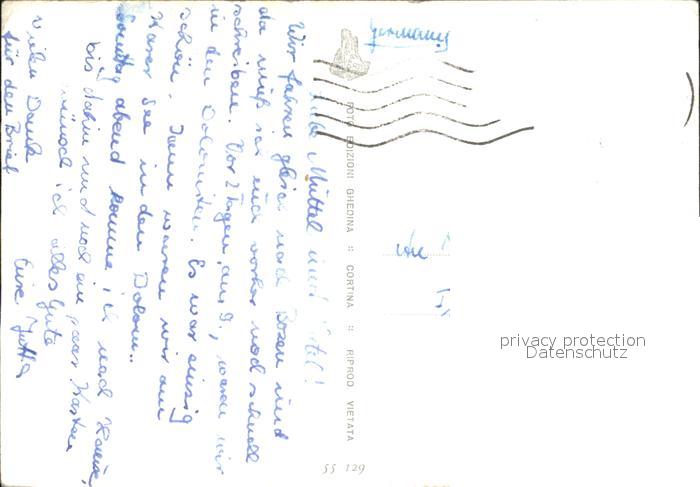 Wir fahren gleich nach Bozen und
da muß ich euch vorher noch schnell
schreiben. Vor 2 Tagen, waren wir
in den Dolomiten. Es war einzig
schön. Dann waren wir am
Karer See in den Dolom..
Sonntag abend komme ich nach Hause,
bis dahin und noch ein paar Karten
wünsch ich alles Gute
Eure Jutta
Vielen Dank
für den Brief
FOTO EDIZIONI GHEDINA :: CORTINA :: RIPROD VIETATA
Germany
privacy protection
Datenschutz
55 129